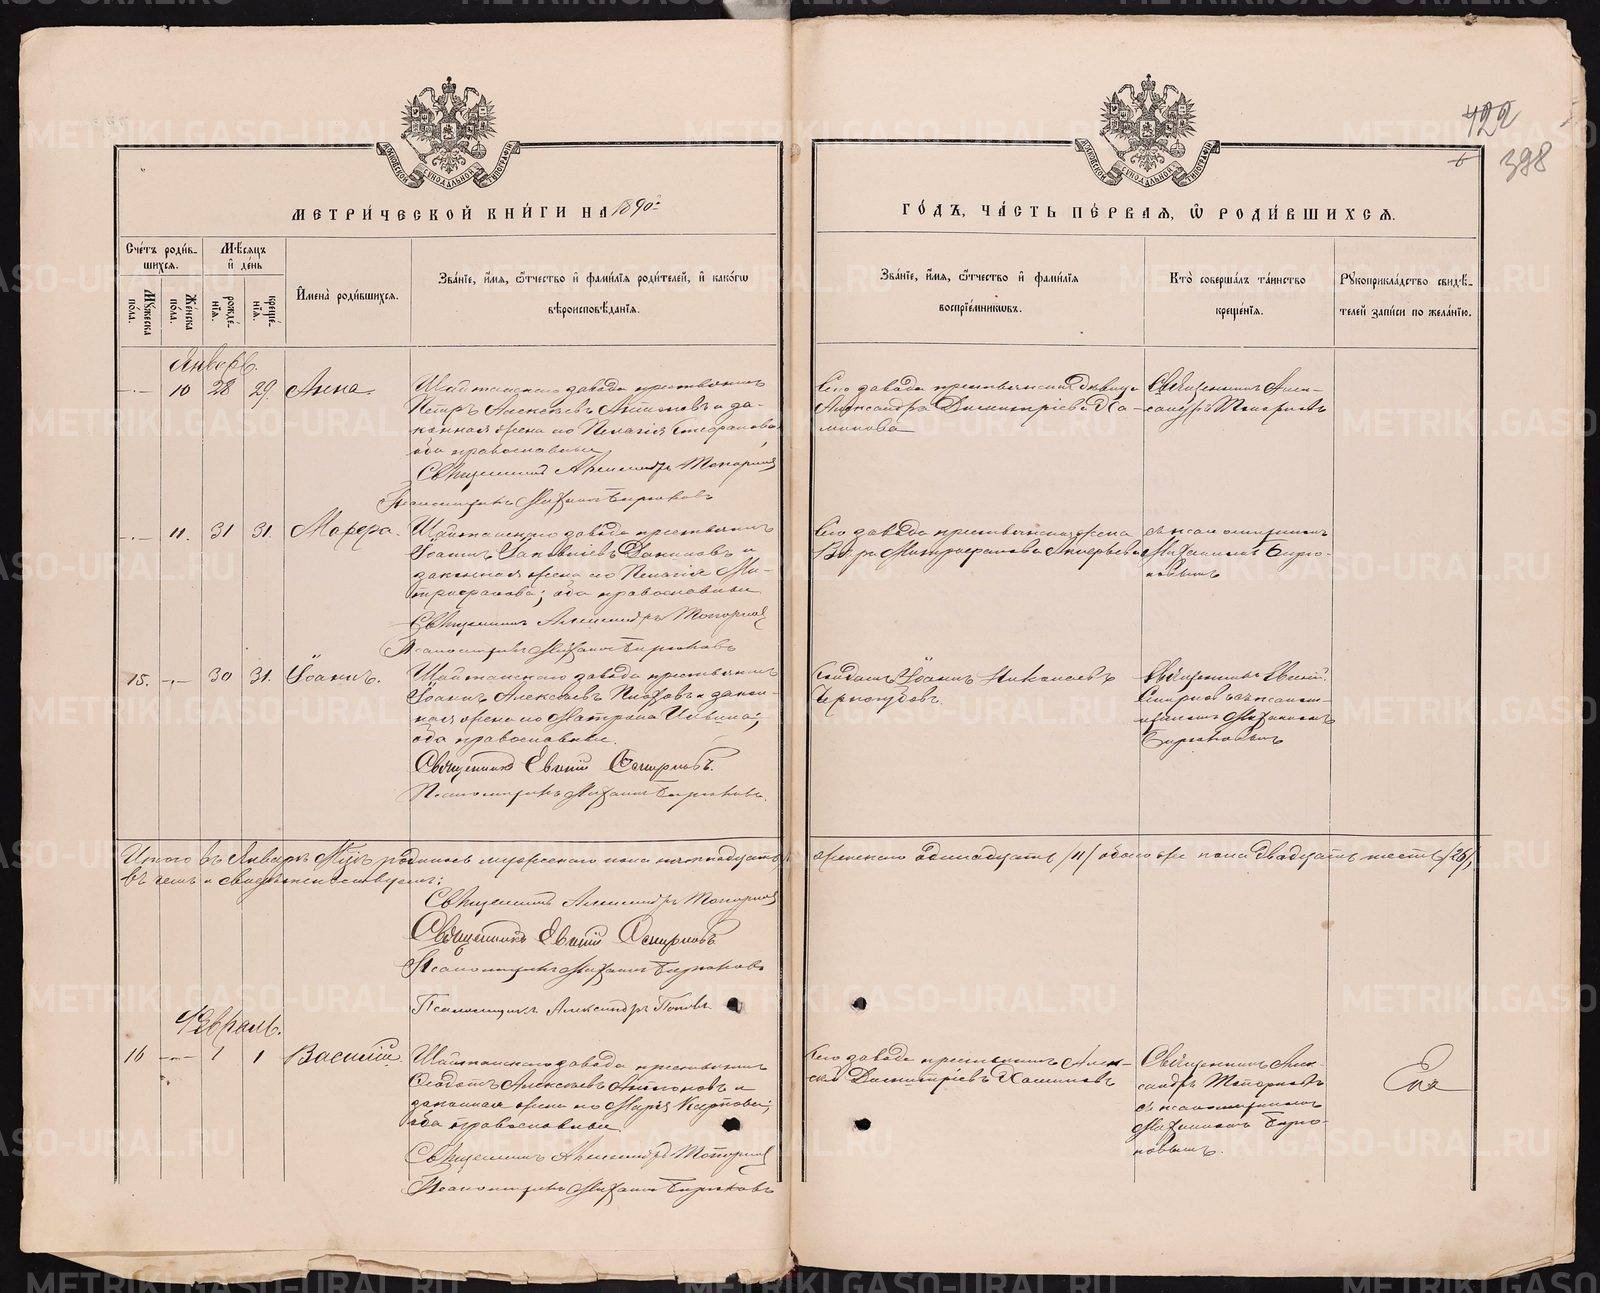 422
398
МЕТРИ́ЧЕСКОЙ КНИ́ГИ НА 1890 г.
ГО́ДЪ, ЧА́СТЬ ПЕ́РВАЯ, Ѡ РОДИ́ВШИХСЯ.
Сче́тъ роди́вшихся.
Му́жеска пола.
Же́нска пола.
Мѣ́сяцъ и де́нь
рожде́нїя.
креще́нїя.
Имена̀ роди́вшихся.
Зва́нїе, и́мя, ѻ́тчество и фами́лїя роди́телей, и како́гѡ
вѣроисповѣ́данїя.
Зва́нїе, и́мя, ѻ́тчество и фами́лїя
воспрїе́мникѡвъ.
Кто̀ соверша́лъ та́инство
креще́нїя.
Рукоприкла́дство свидѣ́телей за́писи по жела́нїю.
Январь.
10 28 29. Анна.
Шайтанскаго завода крестьянинъ
Петръ Алексѣевъ Антоновъ и за-
конная жена его Пелагія Стефанова,
оба православные
Священникъ Александръ Топорковъ
Псаломщикъ Михаилъ Бирюковъ
Сего завода крестьянская дѣвица
Александра Димитріева Ха-
минова
Священникъ Алек-
сандръ Топорковъ
11. 31 31.
Шайтанскаго завода крестьянинъ
Іоаннъ Даниловъ и
законная жена его Пелагія Ми-
трофанова; оба православные
Священникъ Александръ Топорковъ
Псаломщикъ Михаилъ Бирюковъ
Сего завода крестьянская жена
Вѣра Митрофанова
съ псаломщикомъ
Михаиломъ Бирю-
ковымъ
15. 30 31. Іоаннъ.
Шайтанскаго завода крестьянинъ
Іоаннъ Алексѣевъ Плоховъ и закон-
ная жена его Матрона Ильина;
оба православные.
Священникъ Евгеній Смирновъ.
Псаломщикъ Михаилъ Бирюковъ.
Солдатъ Іоаннъ Николаевъ
Священникъ Евгеній
Смирновъ съ псалом-
щикомъ Михаиломъ
Бирюковымъ
Итого въ Январѣ М-цѣ родилось мужескаго пола пятнадцать, женскаго одиннадцать /11/ обоего же пола двадцать шесть /26/,
въ чемъ и свидѣтельствуемъ:
Священникъ Александръ Топорковъ
Священникъ Евгеній Смирновъ
Псаломщикъ Михаилъ Бирюковъ
Псаломщикъ Александръ Поповъ
Февраль.
16 1 1 Василій.
Шайтанскаго завода крестьянинъ
Ѳеодотъ Алексѣевъ Антоновъ и
законная жена его Марія Карпова;
оба православные
Священникъ Александръ Топорковъ
Псаломщикъ Михаилъ Бирюковъ
Сего завода крестьянинъ Алек-
сѣй Димитріевъ Хаминовъ
Священникъ Алек-
сандръ Топорковъ
съ псаломщикомъ
Михаиломъ Бирю-
ковымъ.
METRIKI.GASO-URAL.RU